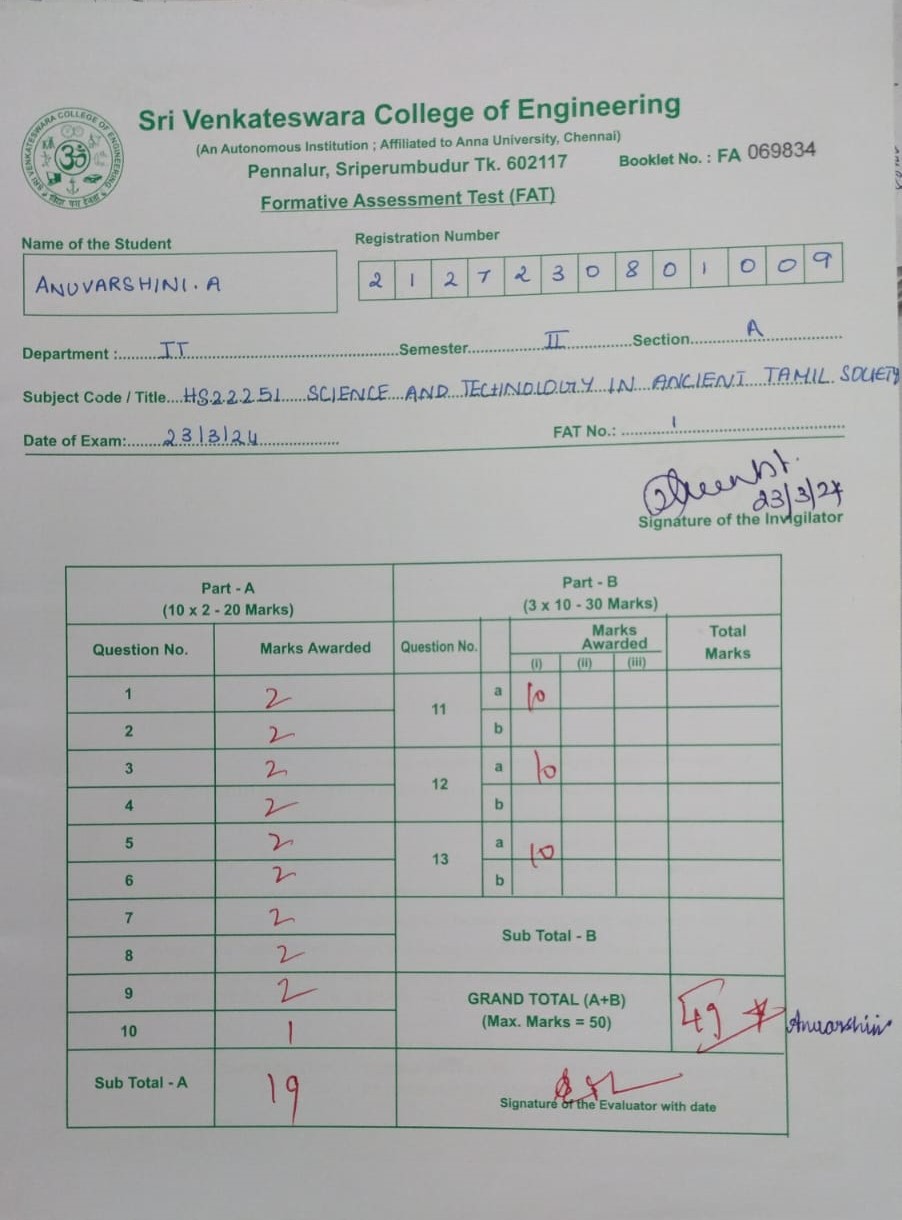 Sri Venkateswara College of Engineering
(An Autonomous Institution ; Affiliated to Anna University, Chennai)
Pennalur, Sriperumbudur Tk. 602117
Booklet No. : FA 069834
Formative Assessment Test (FAT)
Name of the Student
Registration Number
ANUVARSHINI. A
2127230801009
Department : IT Semester II Section A
Subject Code / Title HS22251 SCIENCE AND TECHNOLOGY IN ANCIENT TAMIL SOCIETY
Date of Exam: 23/3/24 FAT No.: 1
23/3/24
Signature of the Invigilator
Part - A Part - B
(10 x 2 - 20 Marks) (3 x 10 - 30 Marks)
Question No. Marks Awarded Question No. Marks Awarded Total Marks
(i) (ii) (iii)
1 2 11 a 10
2 2 b
3 2 12 a 10
4 2 b
5 2 13 a 10
6 2 b
7 2
8 2 Sub Total - B
9 2 GRAND TOTAL (A+B) 49
10 1 (Max. Marks = 50) Anuarshini
Sub Total - A 19
Signature of the Evaluator with date